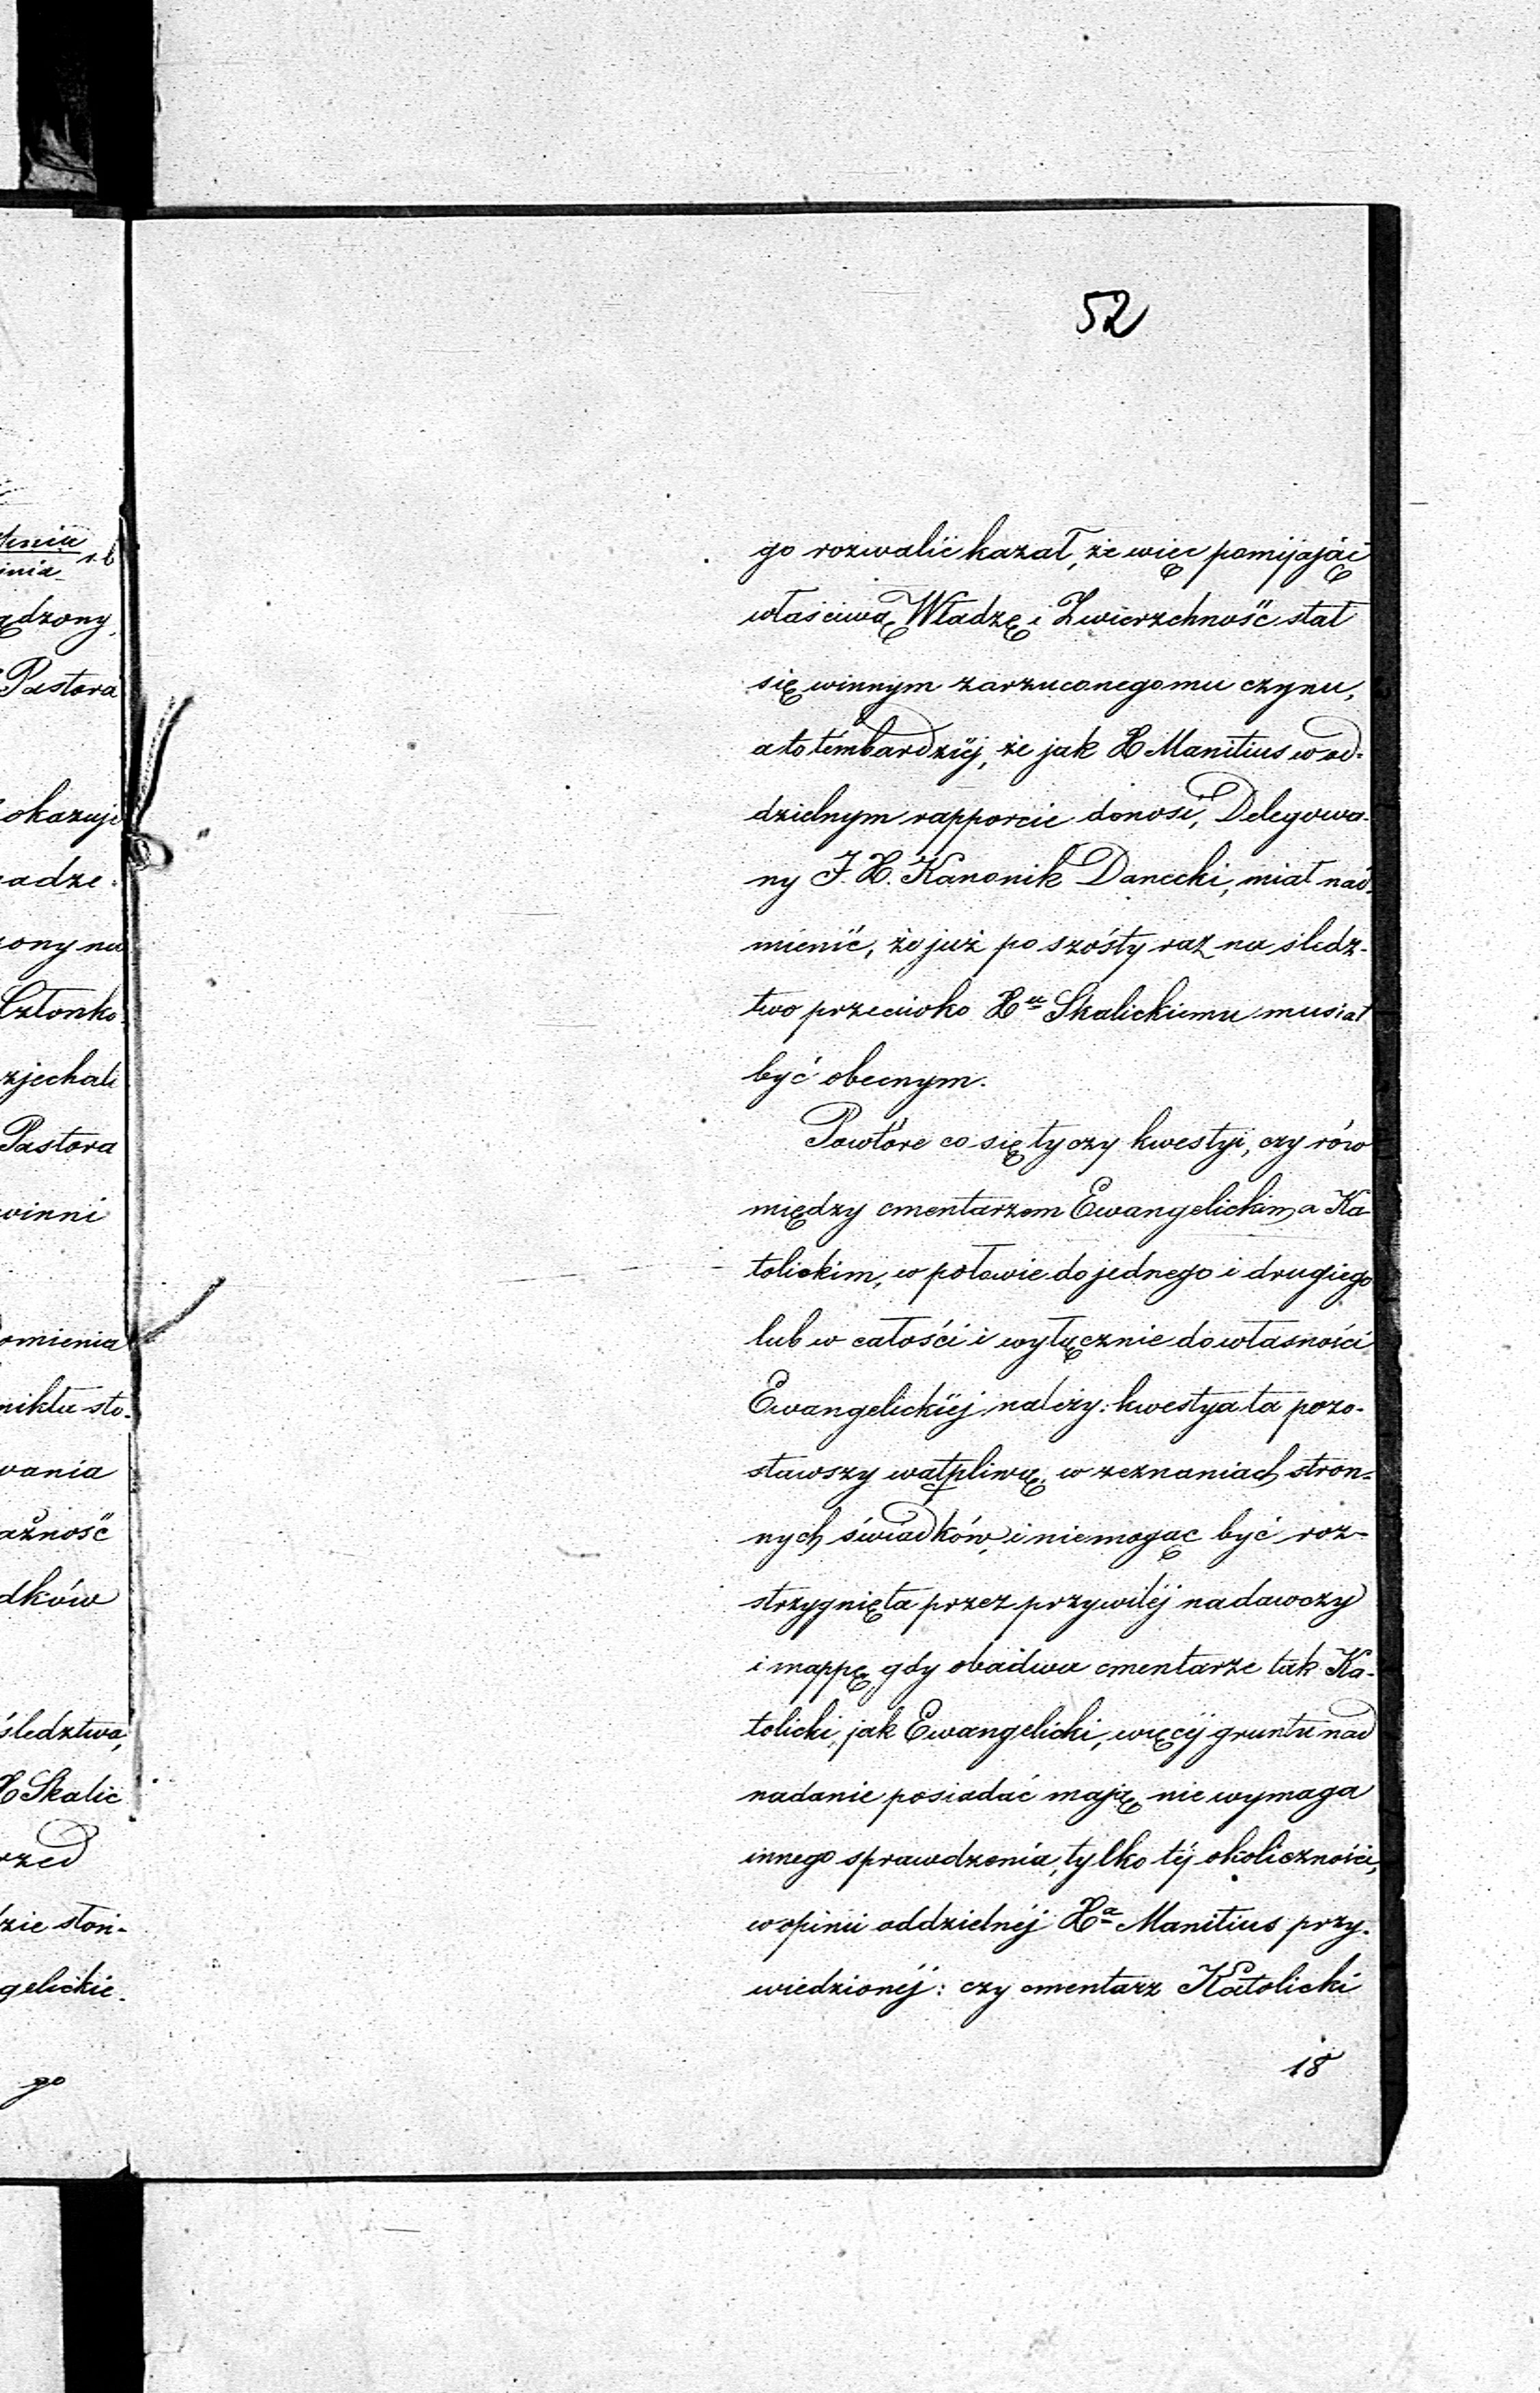 52
go rozwalić kazał, że więc pomijając
właściwą Władzę i Zwierzchność stał
się winnym zarzuconego mu czynu,
a to témbardziéj, że jak X Manitius w od-
dzielnym rapporcie donosi, Delegowa-
ny J. X. Kanonik Danecki, miał nad-
mienić, że już po szósty raz na śledz-
two przeciwko Xu Skalickiemu musiał
być obecnym.
Powtóre co się tyczy kwestyi, czy rów
między cmentarzem Ewangelickim a Ka-
tolickim, w połowie do jednego i drugiego
lub w całości i wyłącznie do własności
Ewangelickiéj należy: kwestya ta pozo-
stawszy wątpliwą, w zeznaniach stron-
nych świadków, i niemogąc być roz-
strzygnięta przez przywiléj nadawczy
i mappę, gdy obadwa cmentarze tak Ka-
tolicki, jak Ewangelicki, więcéj gruntu nad
nadanie posiadać mają, nie wymaga
innego sprawdzenia, tylko téj okoliczności,
w opinii oddzielnéj Xa Manitius przy-
wiedzionéj: czy cmentarz Katolicki
18
pniu
inia
r. b
ądzony,
Pastora
okazuje
adze-
ony na
Członko-
zjechali
Pastora
winni
omienia
niktu sto-
wania
ażność
dków
śledztwa,
X Skalic
rzed
dzie stoń-
gelickie-
go